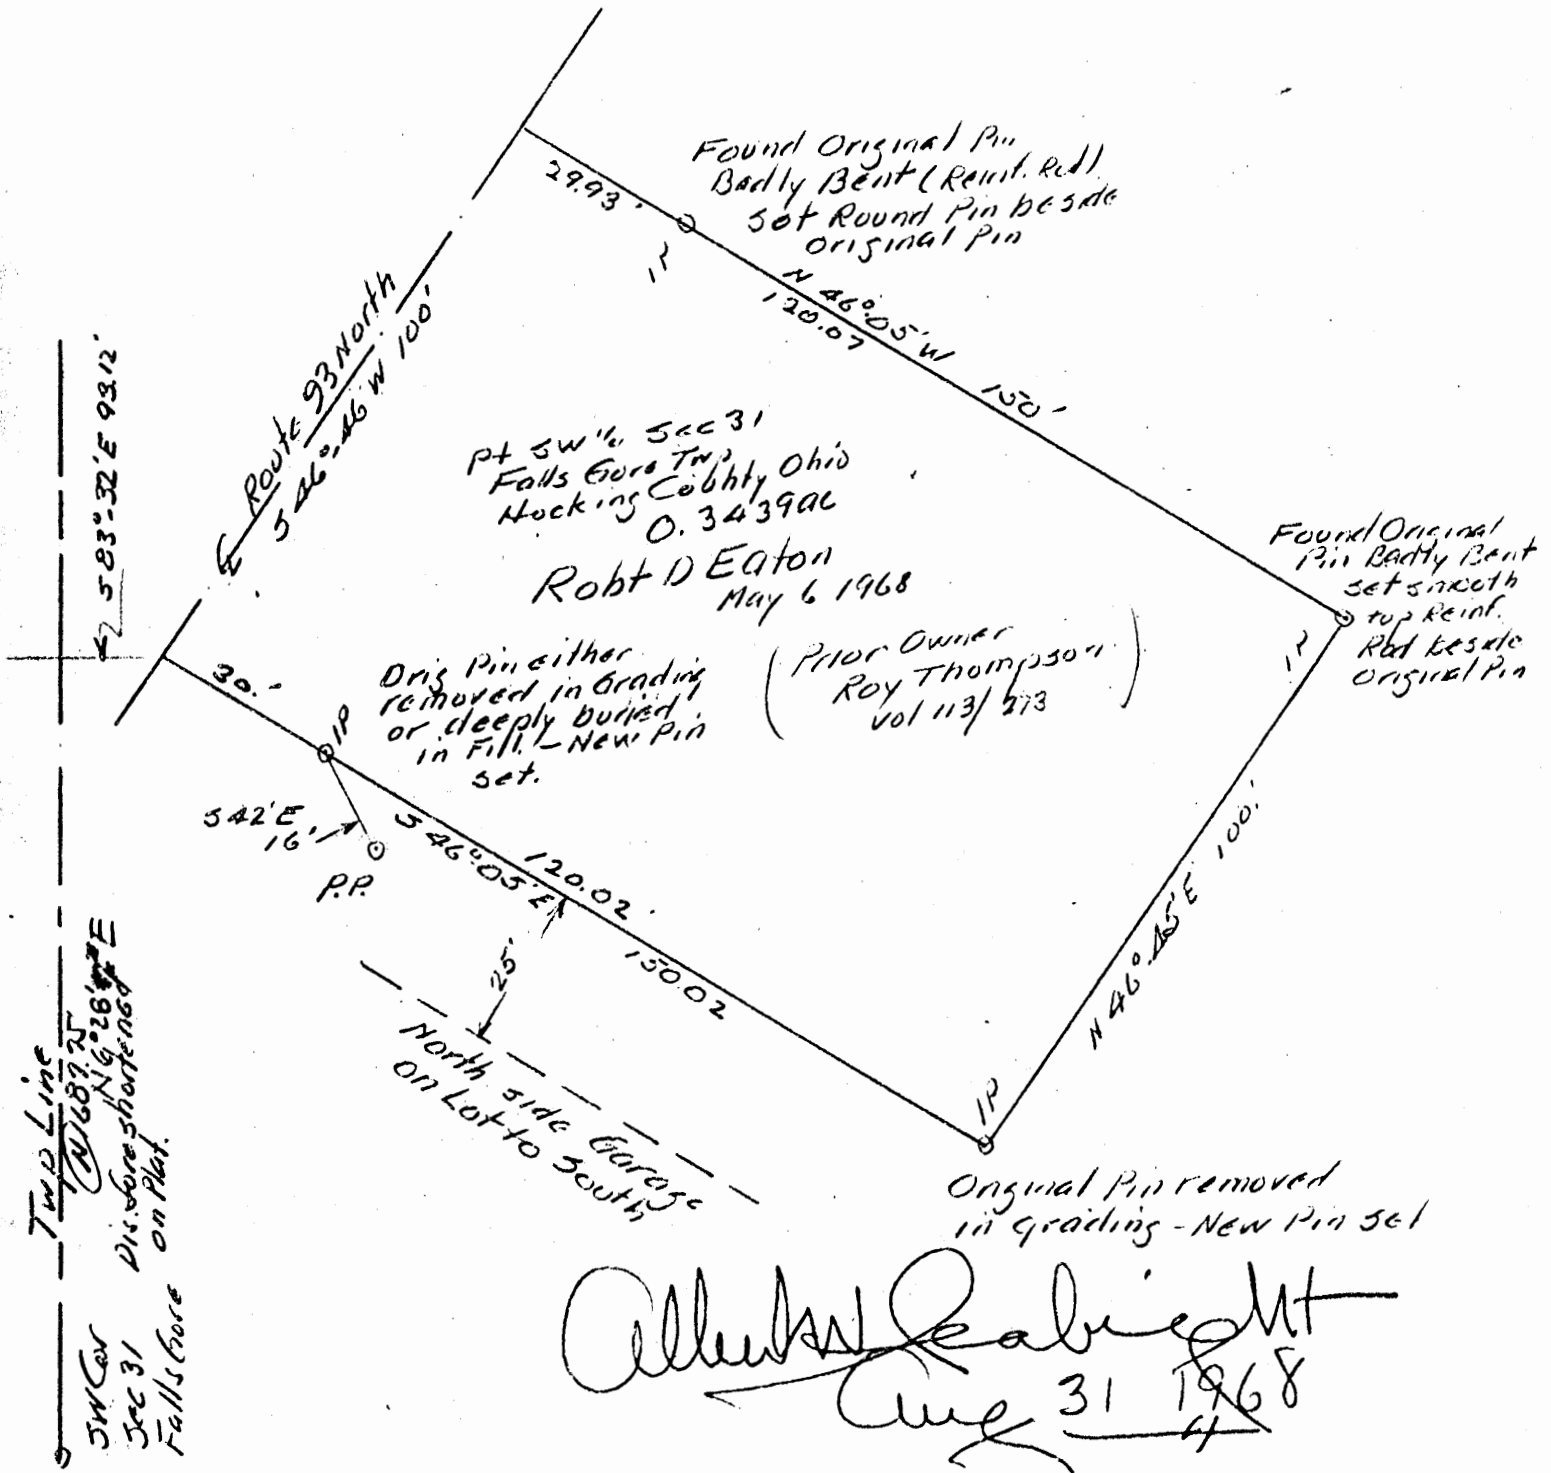 Found Original Pin
Badly Bent (Reinf. Rod)
Set Round Pin beside
original Pin
29.93'
IP
N 46°-05' W
120.07
150'
Route 93 North
S 46°-46' W 100'
S 83°-32' E 93.12'
Pt SW 1/4 Sec 31
Falls Gore Twp
Hocking County Ohio
0.3439 ac
Robt D Eaton
May 6 1968
(Prior Owner
Roy Thompson
Vol 113/273)
Found Original
Pin Badly Bent
set smooth
top Reinf.
Rod beside
Original Pin
IP
30.'
IP
Orig Pin either
removed in Grading
or deeply buried
in Fill. - New Pin
set.
S 42' E
16'
P.P.
S 46°-05' E
120.02
150.02
25'
North side Garage
on Lot to South
N 46°-45' E 100.'
IP
Original Pin removed
in grading - New Pin set
Twp Line
N 1687.25
N 6°28' E
Dis. foreshortened
on Plat.
SW Cor
Sec 31
Falls Gore
Aug 31 1968